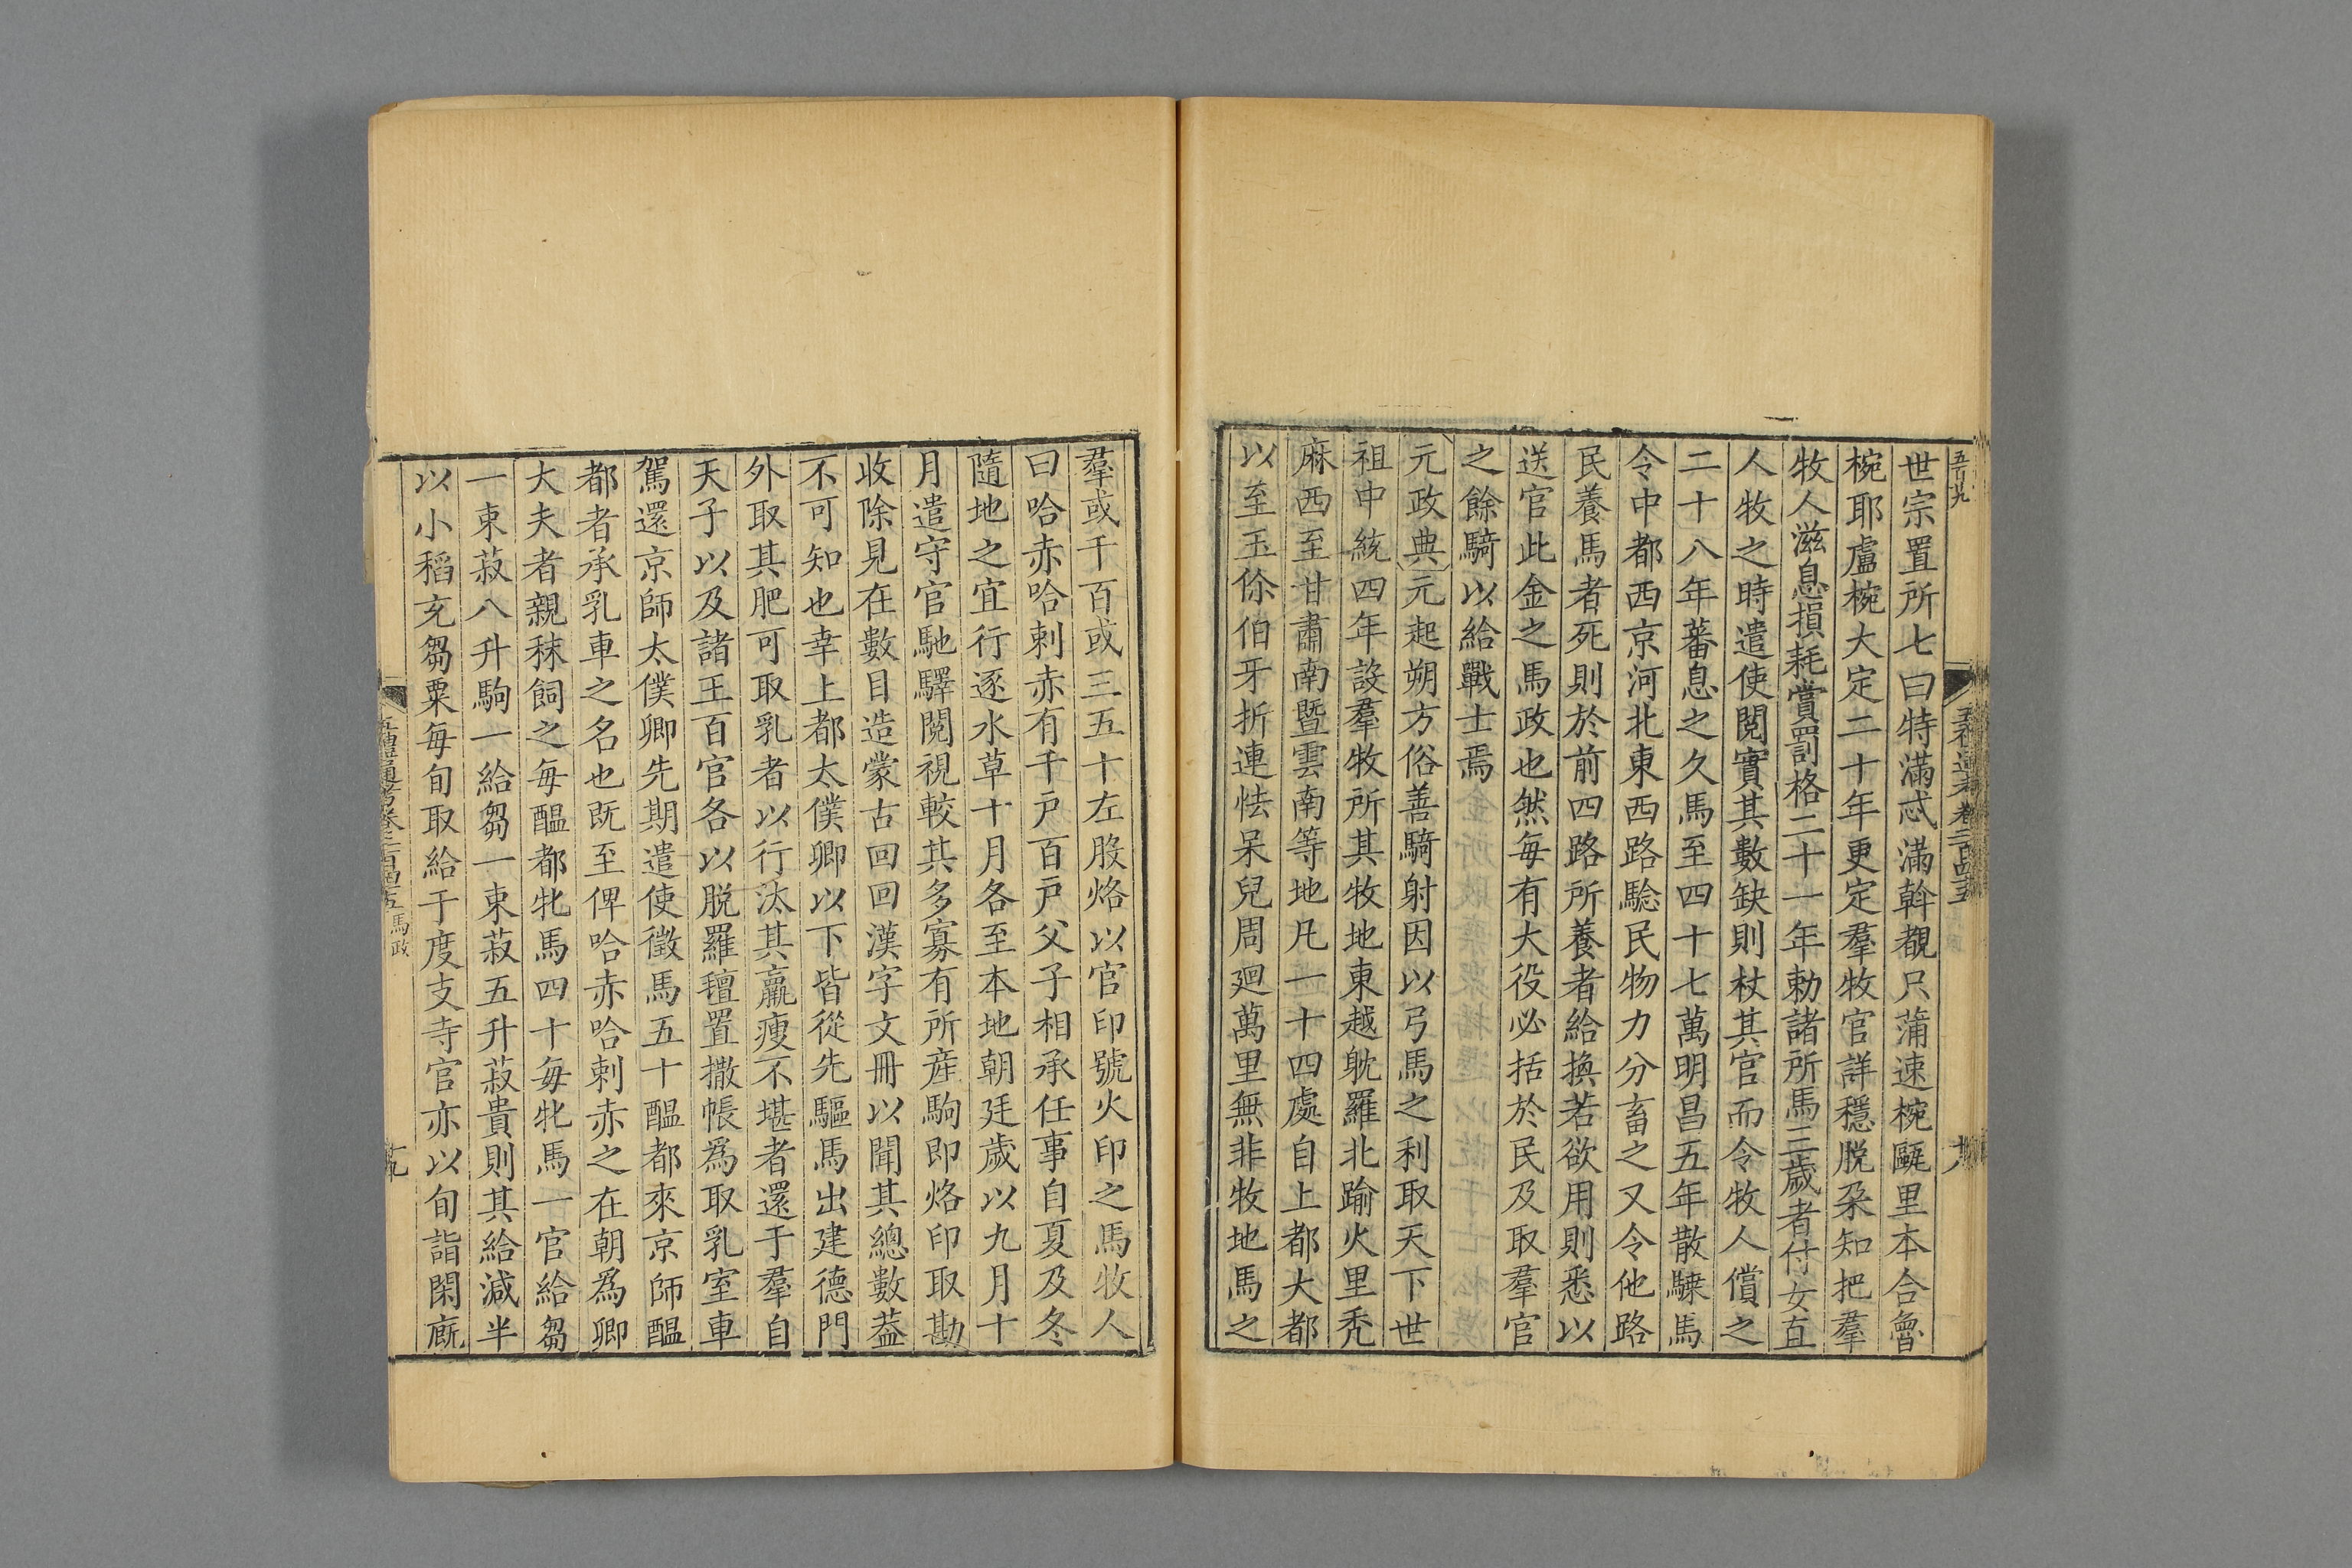 世宗置所七曰特滿忒滿斡覩只蒲速椀甌里本合魯
椀耶盧椀大定二十年更定羣牧官詳穩脫朶知把羣
牧人滋息損耗賞罰格二十一年勅諸所馬三歲者付女直
人牧之時遣使閱實其數缺則杖其官而令牧人償之
二十八年蕃息之久馬至四十七萬明昌五年散騬馬
令中都西京河北東西路驗民物力分畜之又令他路
民養馬者死則於前四路所養者給換若欲用則悉以
送官此金之馬政也然每有大役必括於民及取羣官
之餘騎以給戰士焉
元政典元起朔方俗善騎射因以弓馬之利取天下世
祖中統四年設羣牧所其牧地東越躭羅北踰火里禿
麻西至甘肅南暨雲南等地凡一十四處自上都大都
以至玉你伯牙折連怯呆兒周廻萬里無非牧地馬之
羣或千百或三五十左股烙以官印號火印之馬牧人
曰哈赤哈剌赤有千戶百戶父子相承任事自夏及冬
隨地之宜行逐水草十月各至本地朝廷歲以九月十
月遣守官馳驛閱視較其多寡有所產駒即烙印取勘
收除見在數目造蒙古回回漢字文冊以聞其總數葢
不可知也幸上都太僕卿以下皆從先驅馬出建德門
外取其肥可取乳者以行汰其羸瘦不堪者還于羣自
天子以及諸王百官各以脫羅氊置撒帳爲取乳室車
駕還京師太僕卿先期遣使徵馬五十醖都來京師醖
都者承乳車之名也既至俾哈赤哈剌赤之在朝爲卿
大夫者親秣飼之每醖都牝馬四十每牝馬一官給芻
一束菽八升駒一給芻一束菽五升菽貴則其給減半
以小稻充芻粟每旬取給于度支寺官亦以旬詣閑廐
五禮通考卷二百四十五 馬政
十九